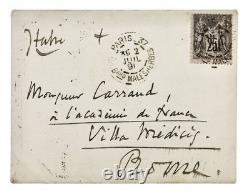 Italie
PARIS 37
JUIL
91
BOUD MALESHERBES
25
Monsieur Carraud,
à l'académie de France
Villa Médicis
Rome